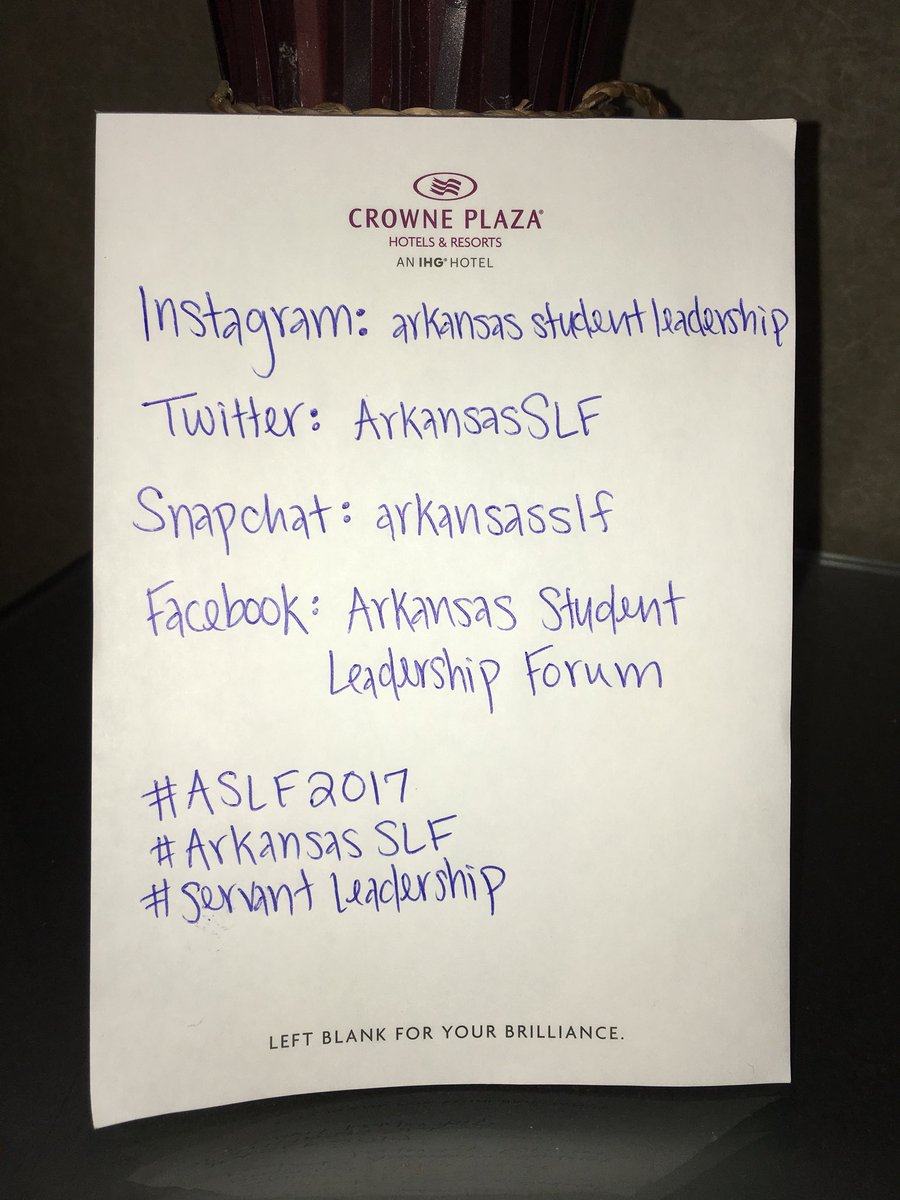 CROWNE PLAZA®
HOTELS & RESORTS
AN IHG® HOTEL
Instagram: arkansas student leadership
Twitter: ArkansasSLF
Snapchat: arkansasslf
Facebook: Arkansas Student
Leadership Forum
#ASLF2017
#Arkansas SLF
#servant leadership
LEFT BLANK FOR YOUR BRILLIANCE.